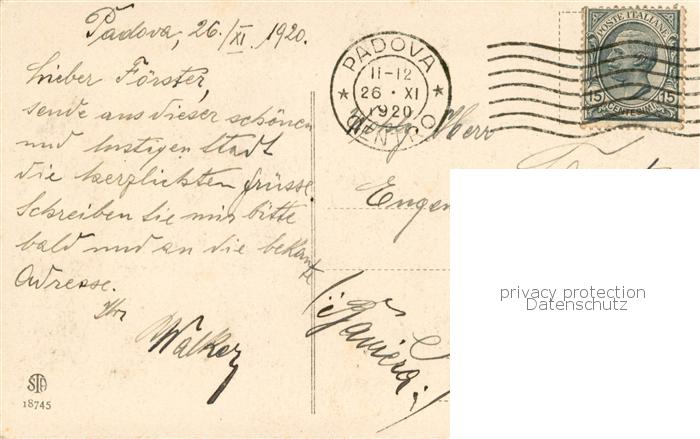 Padova, 26./XI. 1920.
Lieber Förster,
sende aus dieser schönen
und lustigen Stadt
die herzlichsten Grüsse
Schreiben Sie mir bitte
bald und an die bekannte
Adresse.
Ihr
Walker
STA
18745
PADOVA
11-12
26 · XI
1920
CENTRO
POSTE ITALIANE
15 15
Herr
Eugen
privacy protection
Datenschutz